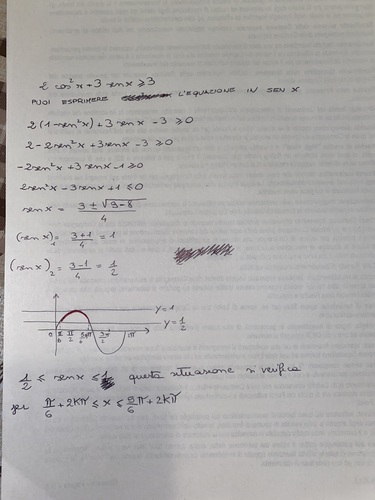 2 cos²x + 3 sen x ≥ 3
PUOI ESPRIMERE L'EQUAZIONE IN SEN X
2(1 - sen²x) + 3 sen x - 3 ≥ 0
2 - 2sen²x + 3sen x - 3 ≥ 0
-2sen²x + 3 sen x - 1 ≥ 0
2sen²x - 3 sen x + 1 ≤ 0
sen x = (3 ± √(9-8))/4
(sen x)₁ = (3+1)/4 = 1
(sen x)₂ = (3-1)/4 = 1/2
y = 1
y = 1/2
0 π/6 π/2 5/6π π
1/2 ≤ sen x ≤ 1 questa situazione si verifica
per π/6 + 2Kπ ≤ x ≤ 5/6π + 2Kπ